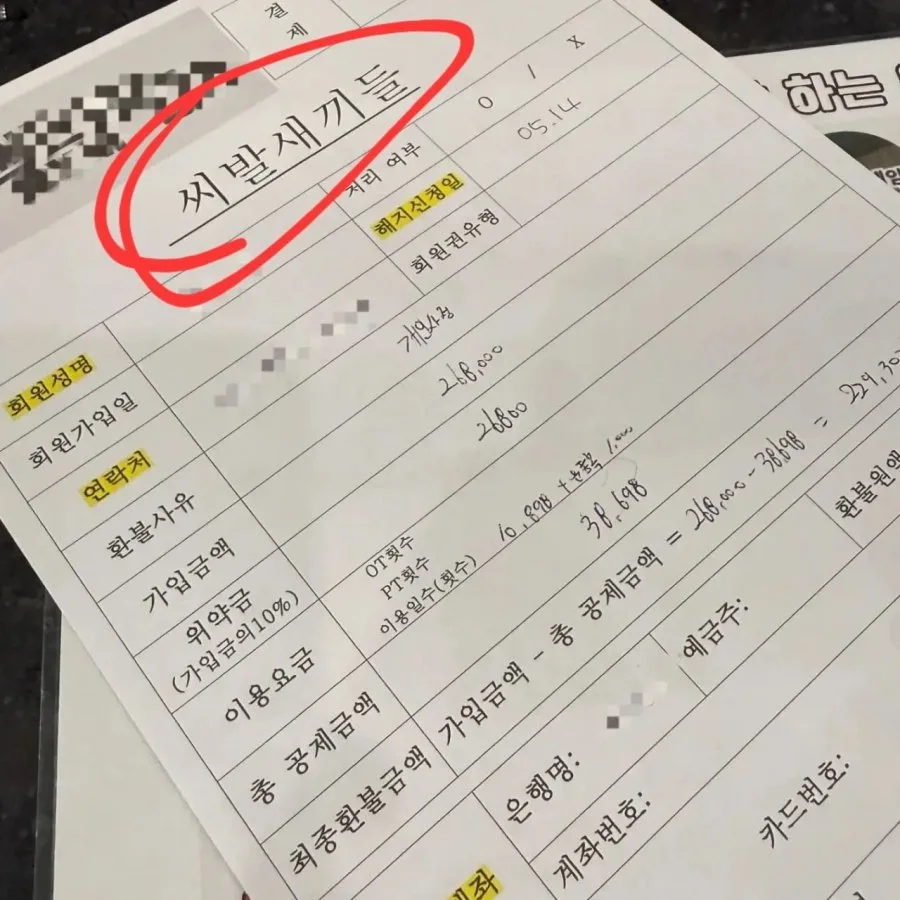 결제
씨발새끼들
처리 여부 O / X
해지신청일 05.14
회원권유형
회원성명
회원가입일
연락처
환불사유 개인사정
가입금액 268,000
위약금 26800
(가입금의10%)
이용요금
OT횟수
PT횟수
이용일수(횟수) 10,898 + 1,000
총 공제금액 38,698
최종환불금액 가입금액 - 총 공제금액 = 268,000 - 38,698 = 229,30
환불원액
은행명:
예금주:
계좌번호:
카드번호:
계좌
하는